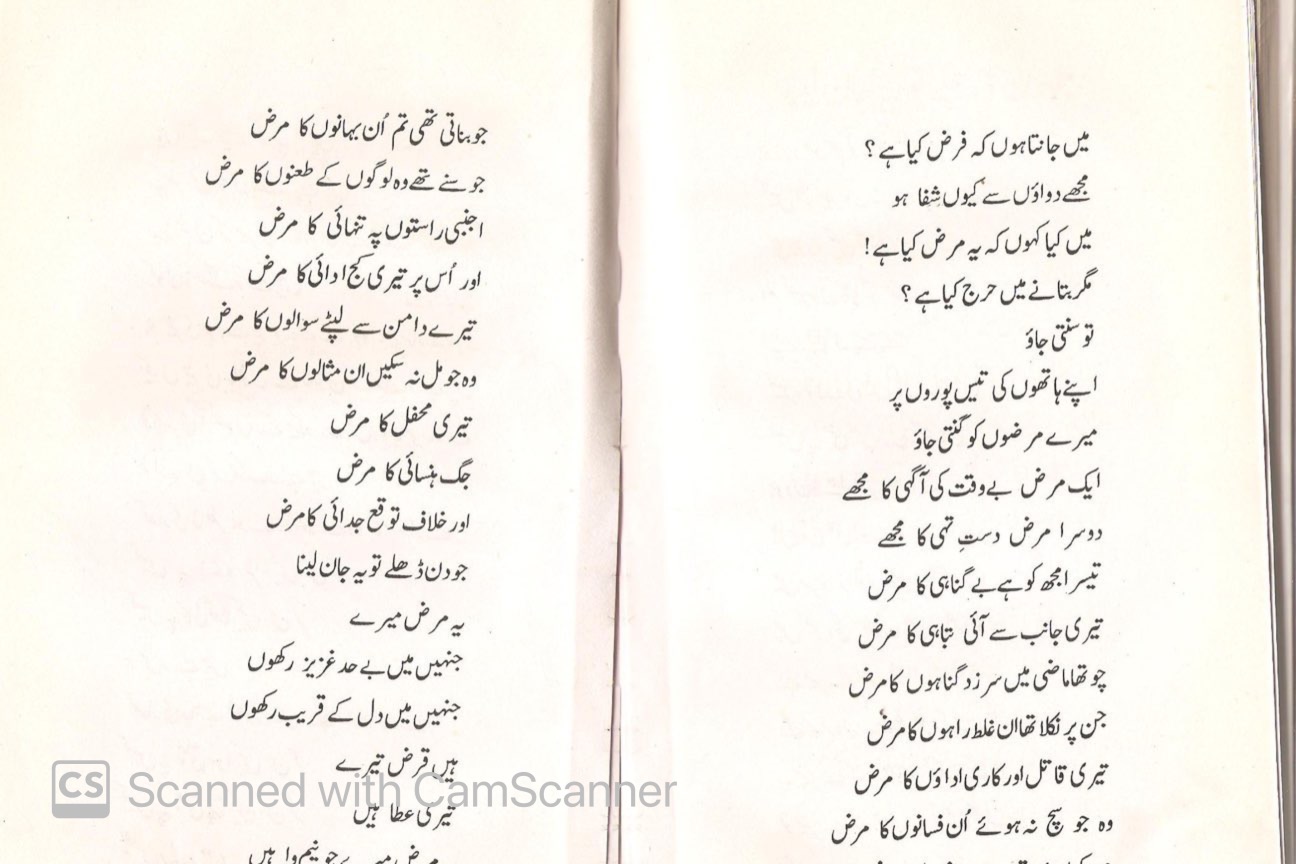 میں جانتا ہوں کہ فرض کیا ہے ؟
مجھے دواؤں سے کیوں شِفا ہو
میں کیا کہوں کہ یہ مرض کیا ہے !
مگر بتانے میں حرج کیا ہے ؟
تو سنتی جاؤ
اپنے ہاتھوں کی تیس پوروں پر
میرے مرضوں کو گنتی جاؤ
ایک مرض بے وقت کی آگہی کا مجھے
دوسرا مرض دستِ تہی کا مجھے
تیسرا مجھ کو ہے بے گناہی کا مرض
تیری جانب سے آئی تباہی کا مرض
چوتھا ماضی میں سرزد گناہوں کا مرض
جن پر نکلا تھا ان غلط راہوں کا مرض
تیری قاتل اور کاری اداؤں کا مرض
وہ جو سچ نہ ہوئے اُن فسانوں کا مرض
جو بناتی تھی تم اُن بہانوں کا مرض
جو سنے تھے وہ لوگوں کے طعنوں کا مرض
اجنبی راستوں پہ تنہائی کا مرض
اور اُس پر تیری کج ادائی کا مرض
تیرے دامن سے لپٹے سوالوں کا مرض
وہ جو مل نہ سکیں ان مثالوں کا مرض
تیری محفل کا مرض
جگ ہنسائی کا مرض
اور خلاف توقع جدائی کا مرض
جو دن ڈھلے تو یہ جان لینا
یہ مرض میرے
جنہیں میں بے حد عزیز رکھوں
جنہیں میں دل کے قریب رکھوں
ہیں قرض تیرے
تیری عطا ہیں
مرض میرے جو نیم وا ہیں
CS Scanned with CamScanner